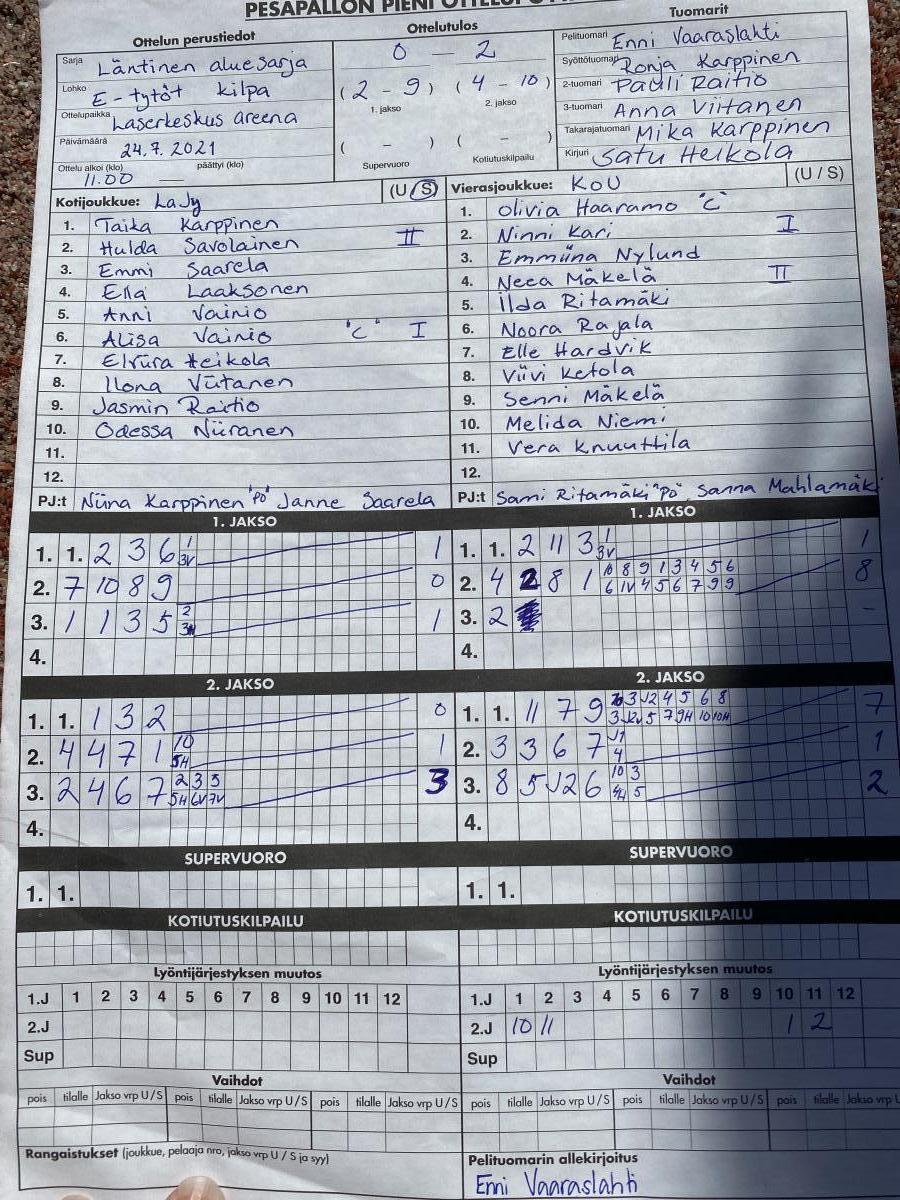 PESÄPALLON PIENI
Ottelun perustiedot
Sarja Läntinen aluesarja
Lohko E-tytöt kilpa
Ottelupaikka Laserkeskus areena
Päivämäärä 24.7.2021
Ottelu alkoi (klo) 11.00 päättyi (klo) —
Ottelutulos
0 - 2
(2 - 9) (4 - 10)
1. jakso 2. jakso
( - ) ( - )
Supervuoro Kotiutuskilpailu
Tuomarit
Pelituomari Enni Vaaraslahti
Syöttötuomari Ronja Karppinen
2-tuomari Pauli Raitio
3-tuomari Anna Viitanen
Takarajatuomari Mika Karppinen
Kirjuri Satu Heikola
Kotijoukkue: LaJy (U/S)
1. Taika Karppinen
2. Hulda Savolainen II
3. Emmi Saarela
4. Ella Laaksonen
5. Anni Vainio
6. Alisa Vainio "C" I
7. Elviira Heikola
8. Ilona Viitanen
9. Jasmin Raitio
10. Odessa Niiranen
11.
12.
PJ:t Niina Karppinen "PO" Janne Saarela
Vierasjoukkue: KoU (U/S)
1. Olivia Haaramo "C"
2. Ninni Kari I
3. Emmiina Nylund
4. Neea Mäkelä II
5. Iida Ritamäki
6. Noora Rajala
7. Elle Hardvik
8. Viivi Ketola
9. Senni Mäkelä
10. Melida Niemi
11. Vera Knuuttila
12.
PJ:t Sami Ritamäki "PO", Sanna Mahlamäki
1. JAKSO
1. 1. 2 3 6 1 3V 1
2. 7 10 8 9 0
3. 1 1 3 5 2 1
4.
1. JAKSO
1. 1. 2 11 3 1 3V 1
2. 4 2 8 1 10 8 9 1 3 4 5 6 8
6 1V 4 5 6 7 9 9
3. 2 -
4.
2. JAKSO
1. 1. 1 3 2 0
2. 4 4 7 1 10 5H 1
3. 2 4 6 7 2 3 5 3
5H 6V 7V
4.
2. JAKSO
1. 1. 11 7 9 3 J2 4 5 6 8 7
3 J2V 5 7 9H 10 10H
2. 3 3 6 7 J1 4 1
3. 8 5 J2 6 10 3 2
4H 5
4.
SUPERVUORO
1. 1.
SUPERVUORO
1. 1.
KOTIUTUSKILPAILU
KOTIUTUSKILPAILU
Lyöntijärjestyksen muutos
1.J 1 2 3 4 5 6 7 8 9 10 11 12
2.J
Sup
Lyöntijärjestyksen muutos
1.J 1 2 3 4 5 6 7 8 9 10 11 12
2.J 10 11 1 2
Sup
Vaihdot
pois tilalle Jakso vrp U/S pois tilalle Jakso vrp U/S pois tilalle Jakso vrp U/S
Vaihdot
pois tilalle Jakso vrp U/S pois tilalle Jakso vrp U/S pois tilalle Jakso vrp
Rangaistukset (joukkue, pelaaja nro, jakso vrp U / S ja syy)
Pelituomarin allekirjoitus
Enni Vaaraslahti